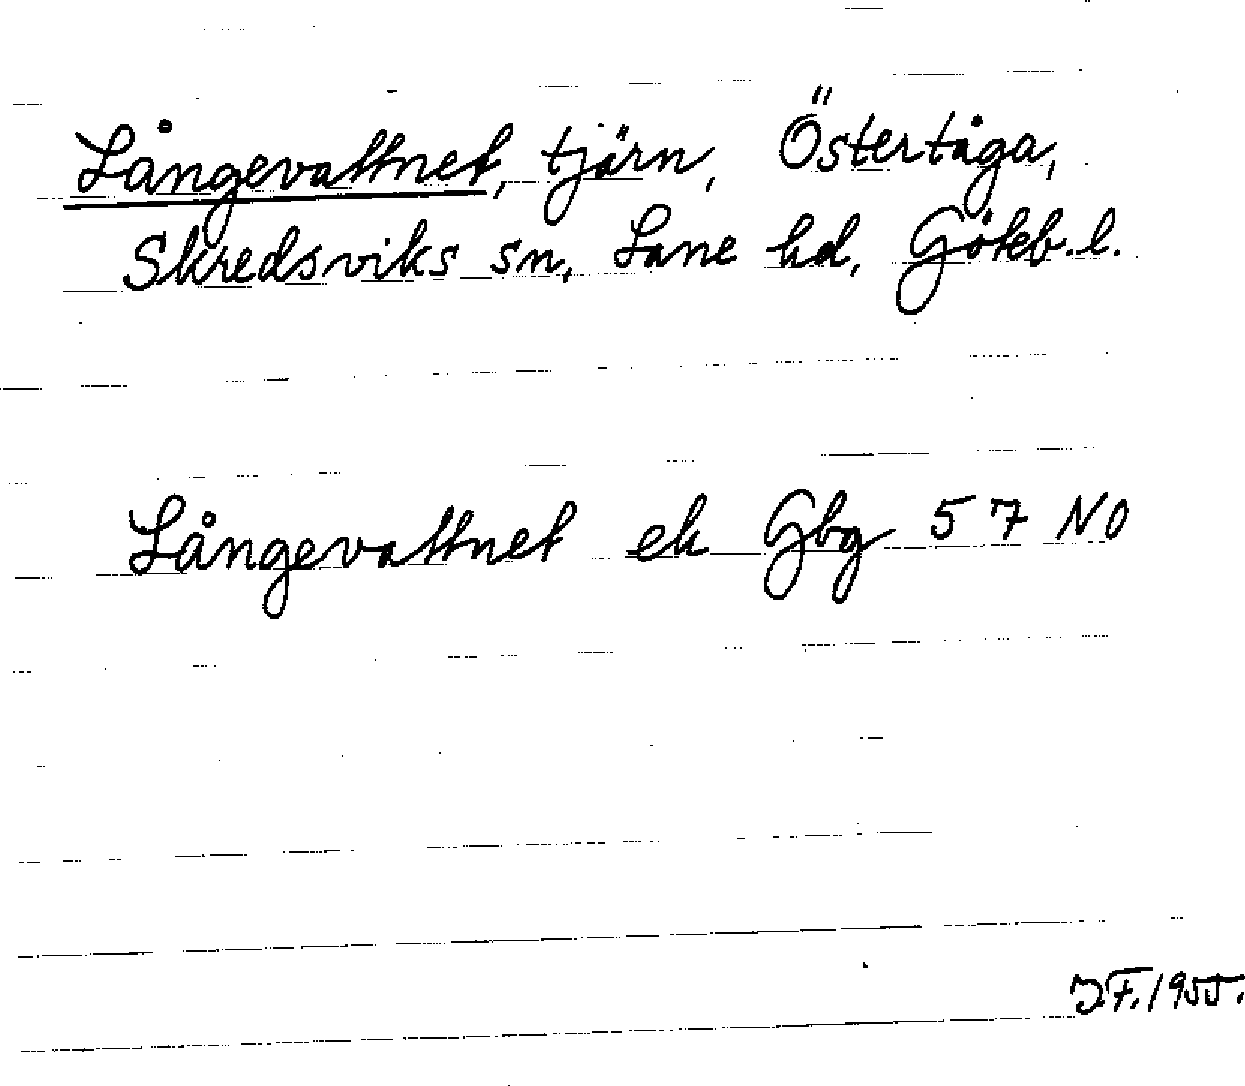 Långevattnet, tjärn, Östertåga,
Skredsviks sn, Lane hd, Göteb. l.
Långevattnet ek Gbg 57 NO
J.F. 1955.